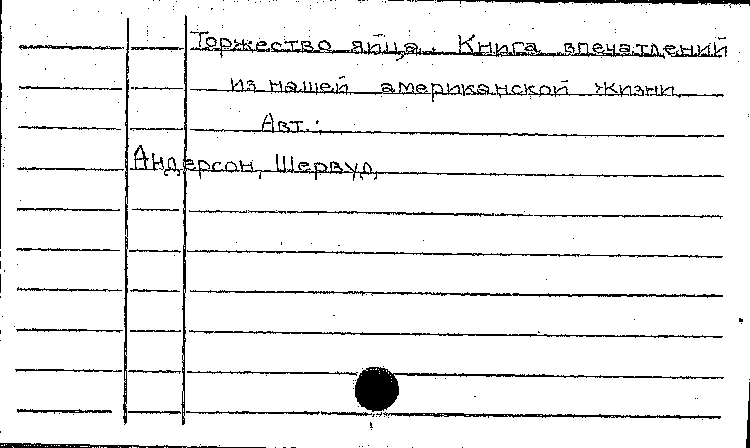 Торжество яйца. Книга впечатлений
из нашей американской жизни.
Авт.:
Андерсон, Шервуд.